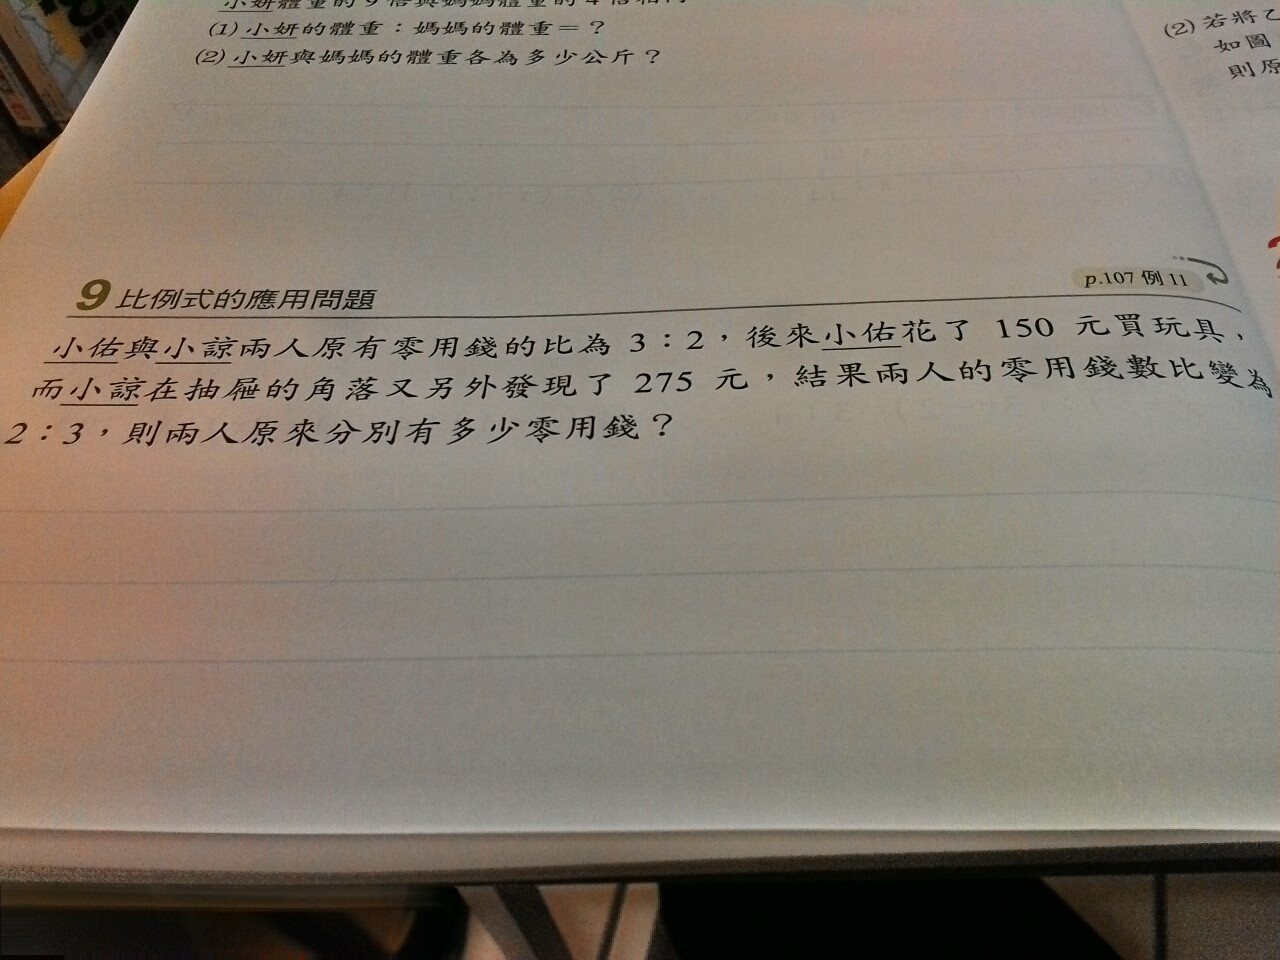 小妍體重的9倍與媽媽體重的4倍相同
(1) 小妍的體重：媽媽的體重＝？
(2) 小妍與媽媽的體重各為多少公斤？
(2) 若將乙
如圖
則原
9 比例式的應用問題
p.107 例 11
小佑與小諒兩人原有零用錢的比為 3：2，後來小佑花了 150 元買玩具，
而小諒在抽屜的角落又另外發現了 275 元，結果兩人的零用錢數比變為
2：3，則兩人原來分別有多少零用錢？